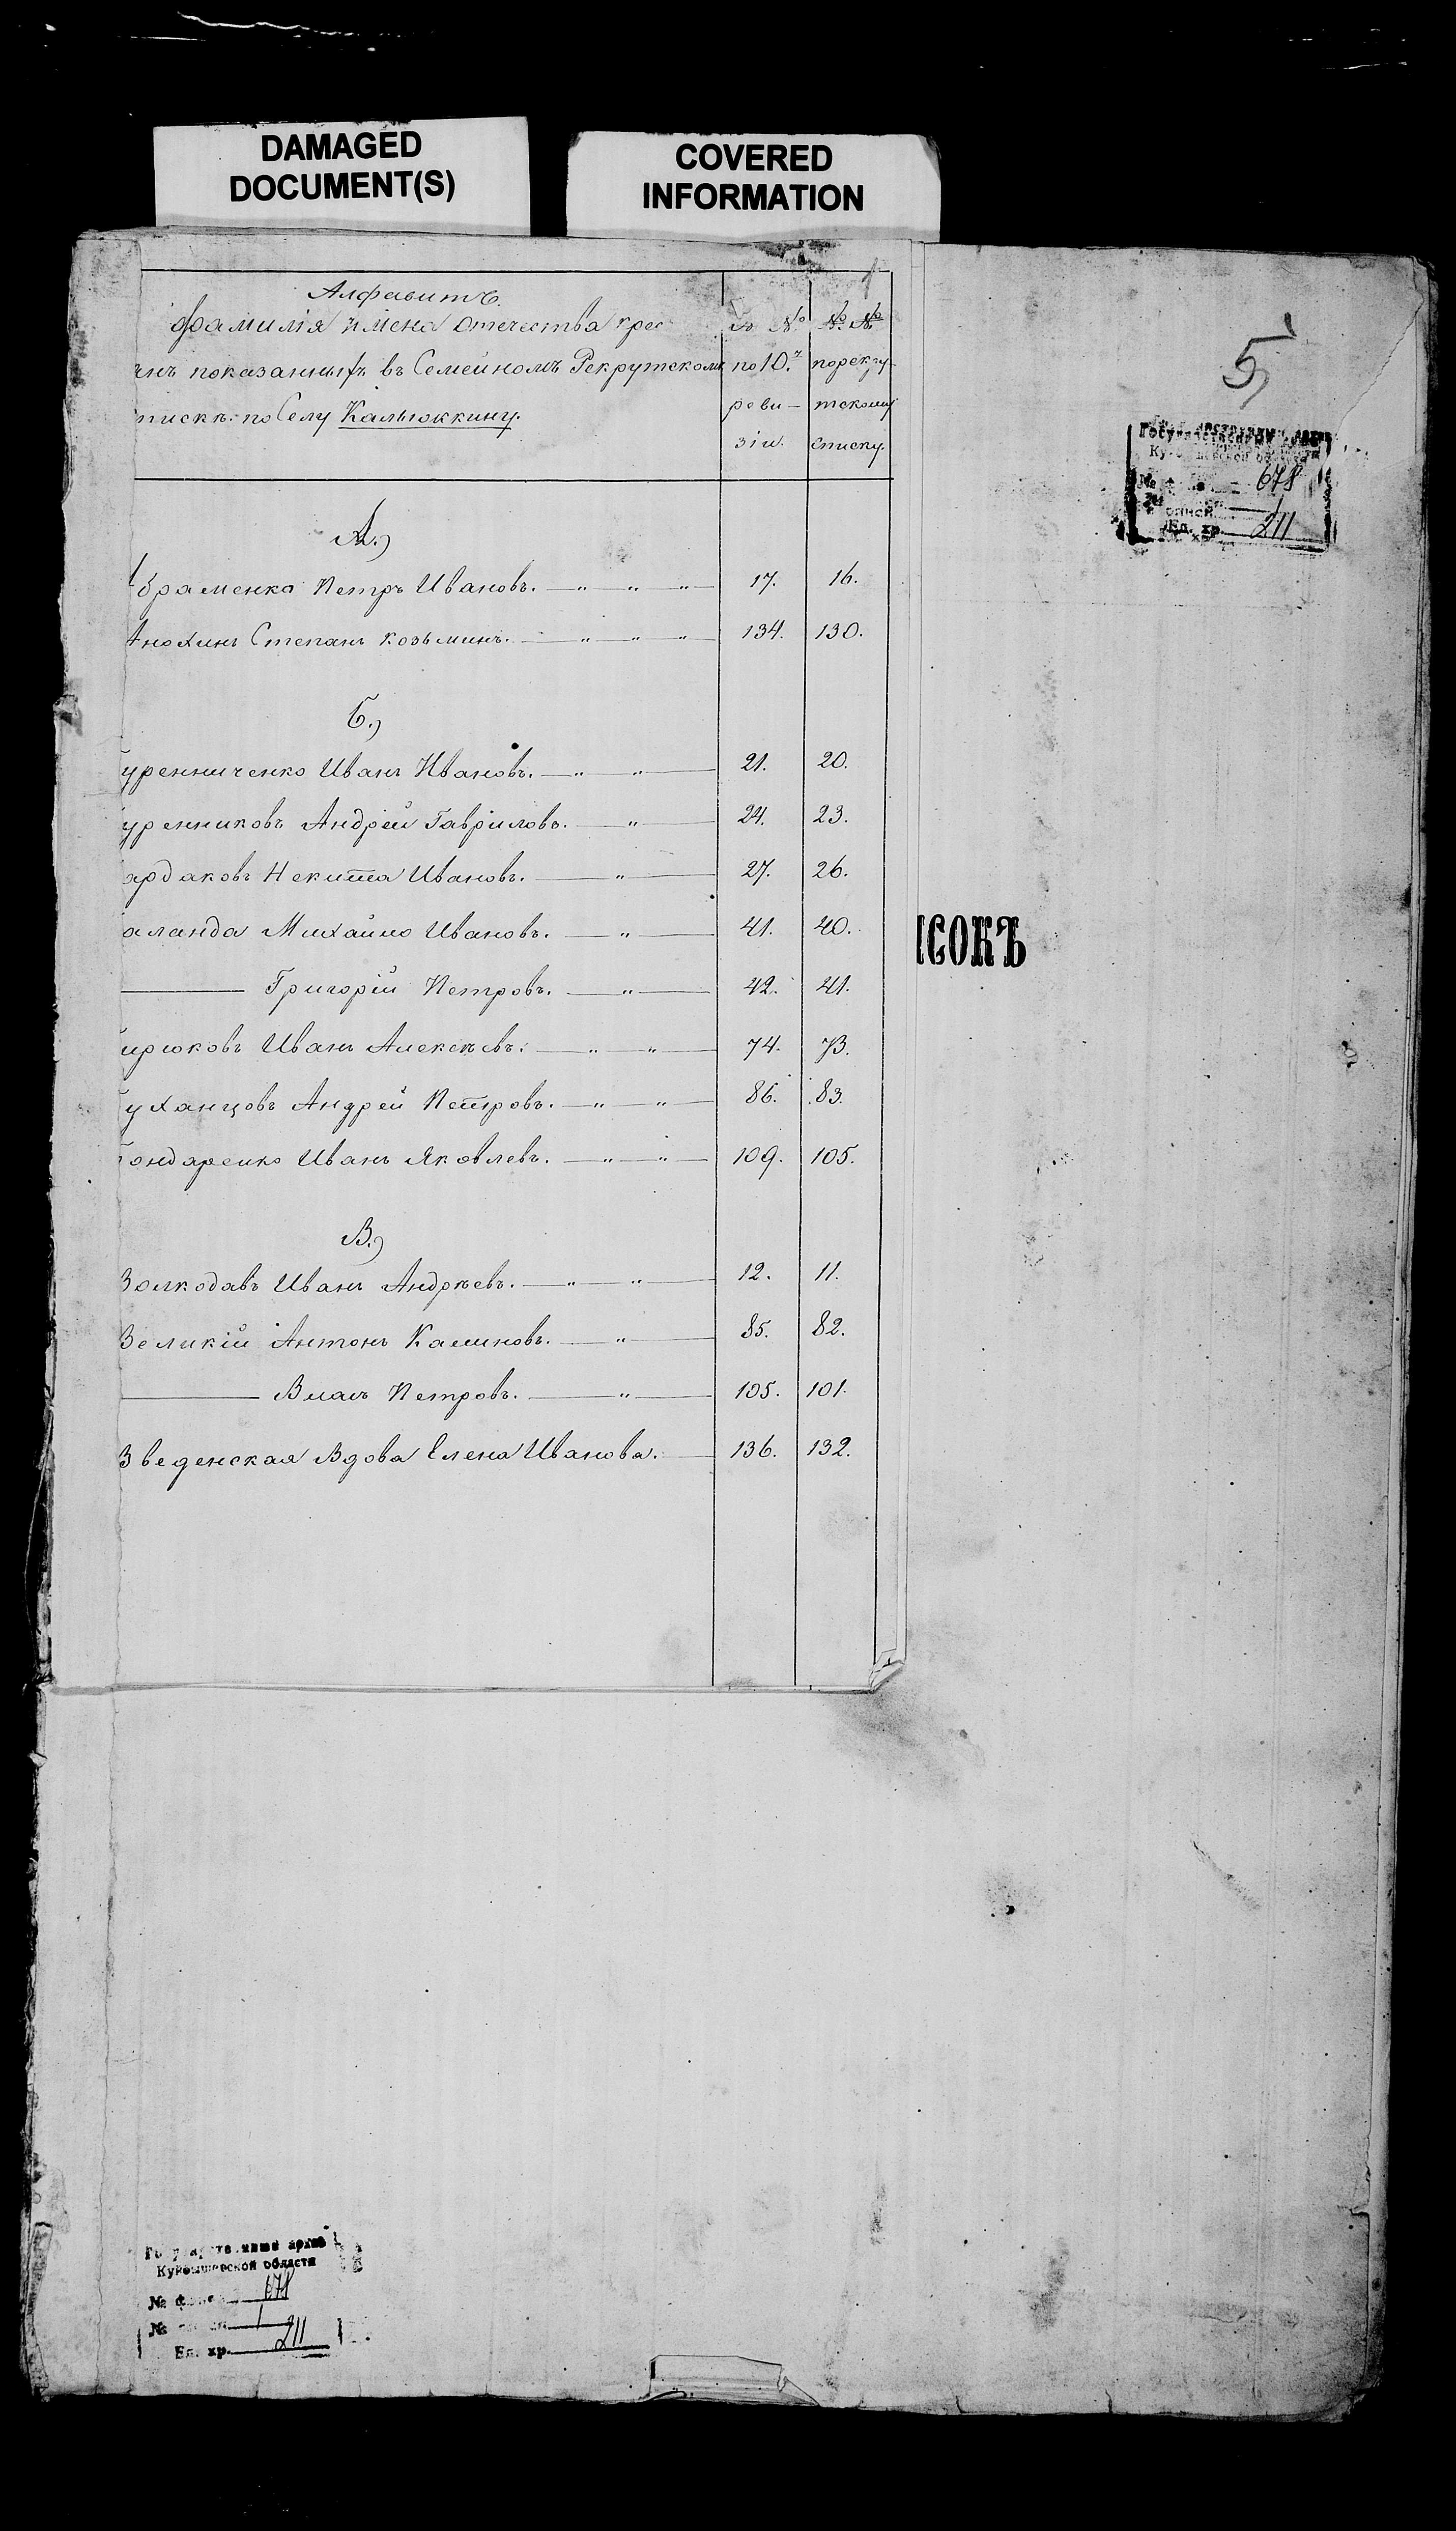 DAMAGED
DOCUMENT(S)
COVERED
INFORMATION
Алфавитъ
фамилія имена отечества крес
янъ показанныхъ въ Семейномъ Рекрутскомъ
пискѣ по Селу Кальюккину.
№
по 10.й
реви-
зіи.
№ №
по рекру-
тскому
списку.
А.)
браменко Петръ Ивановъ. — „ „ „ — 17. 16.
Анохинъ Степанъ Козьминъ. — „ „ „ — 134. 130.
Б.)
уренниченко Иванъ Ивановъ. — „ „ — 21. 20.
уренниковъ Андрей Гавриловъ. — „ — 24. 23.
ардаковъ Никита Ивановъ. — „ — 27. 26.
аланда Михайло Ивановъ. — „ — 41. 40.
— Григорій Петровъ. — „ — 42. 41.
ирюковъ Иванъ Алексѣевъ. — „ „ — 74. 73.
уханцовъ Андрей Петровъ. — „ „ — 86. 83.
ондаренко Иванъ Яковлевъ. — „ „ — 109. 105.
В.)
Волкодавъ Иванъ Андрѣевъ. — „ „ — 12. 11.
Великій Антонъ Калиновъ. — „ — 85. 82.
— Власъ Петровъ. — „ — 105. 101.
Введенская Вдова Елена Иванова. — 136. 132.
5
Государственный архив
Куйбышевской области
№ ф 678
описи 1
Ед. хр. 211
ИСОКЪ
Государственный архив
Куйбышевской области
№ фонда 678
№ 1
Ед. хр. 211